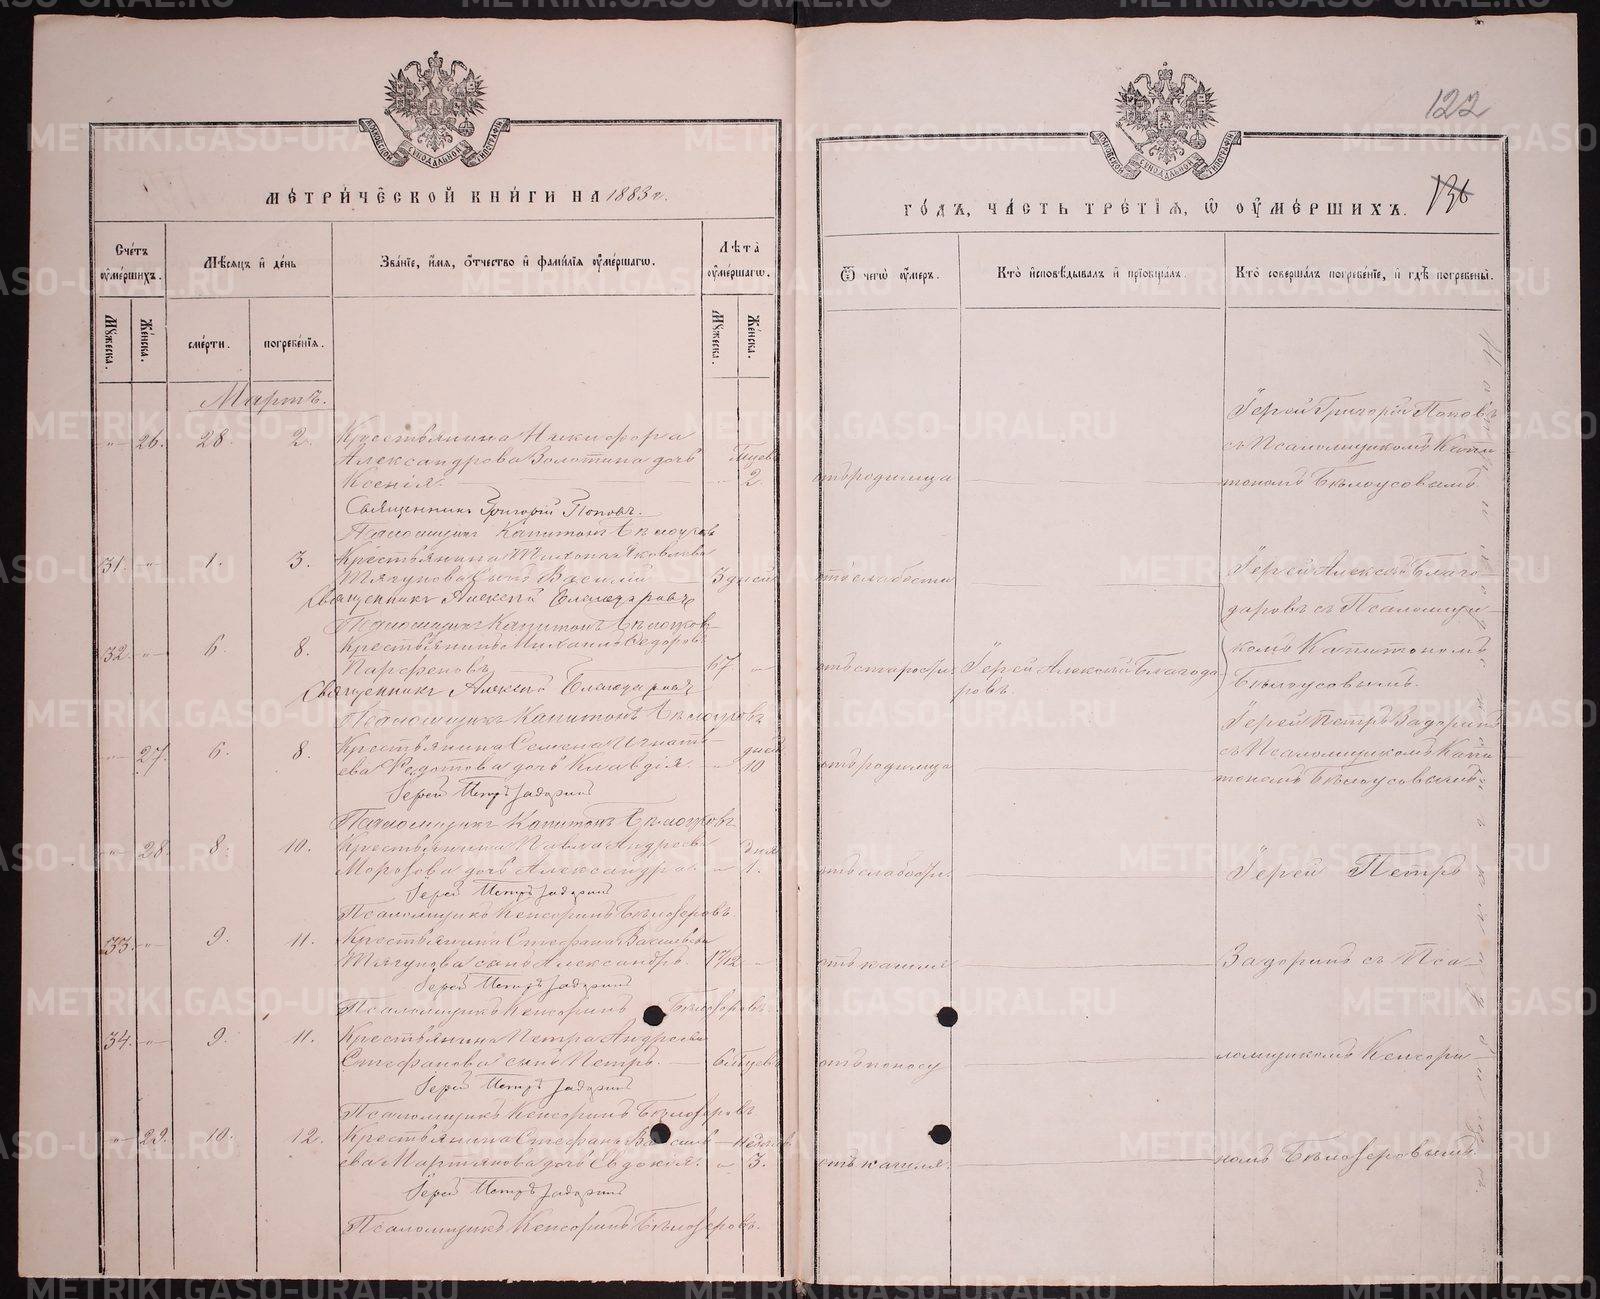 122
136
МОСКОВСКОЙ СѴНОДАЛЬНОЙ ТИПОГРАФІИ
МОСКОВСКОЙ СѴНОДАЛЬНОЙ ТИПОГРАФІИ
МЕТРИЧЕСКОЙ КНИГИ НА 1883 г.
ГОДЪ, ЧАСТЬ ТРЕТІѦ, Ѡ ОУМЕРШИХЪ.
Счетъ оумершихъ.
Мѣсяцъ и день
Званіе, имя, отчество и фамилія оумершагѡ.
Лѣта оумершагѡ.
Ѿ чегѡ оумеръ.
Кто исповѣдывалъ и пріобщалъ.
Кто совершалъ погребеніе, и гдѣ погребены.
Мужеска.
Женска.
смерти.
погребенія.
Мужеска.
Женска.
Мартъ.
26. 28. 2. Крестьянина Никифора
Александрова Золотина дочь
Ксенія. 2.
отъ родимца
Іерей Григорій Поповъ
съ Псаломщикомъ Капи-
тономъ Бѣлоусовымъ
Священникъ Григорій Поповъ.
Псаломщикъ Капитонъ Бѣлоусовъ
31. 1. 3. Крестьянина Тихона Яковлева
Тягунова сынъ Василій 3 дней
отъ слабости
Іерей Алексій Благо-
даровъ съ Псаломщи-
комъ Капитономъ
Бѣлоусовымъ.
Священникъ Алексій Благодаровъ
Псаломщикъ Капитонъ Бѣлоусовъ
32. 6. 8. Крестьянинъ Михаилъ Ѳедоровъ
Парфеновъ 67.
отъ старости.
Іерей Алексій Благода-
ровъ.
Священникъ Алексій Благодаровъ
Псаломщикъ Капитонъ Бѣлоусовъ
27. 6. 8. Крестьянина Семена Игнать-
ева Ѳедотова дочь Клавдія. дней 10
отъ родимца
Іерей Петръ Задоринъ
съ Псаломщикомъ Капи-
тономъ Бѣлоусовымъ
Іерей Петръ Задорин
Псаломщикъ Капитонъ Бѣлоусовъ
28. 8. 10. Крестьянина Павла Андреева
Морозова дочь Александра. дня 1.
отъ слабости.
Іерей Петръ
Іерей Петръ Задорин
Псаломщикъ Кенсоринъ Бѣлозеровъ.
33. 9. 11. Крестьянина Стефана Васильева
Тягунова сынъ Александръ. 1 1/12
отъ кашля
Задоринъ съ Пса-
Іерей Петръ Задорин
Псаломщикъ Кенсоринъ Бѣлозеровъ.
34. 9. 11. Крестьянина Петра Андреева
Стефанова сынъ Петръ. 6 м-цевъ
отъ поносу
ломщикомъ Кенсори-
Іерей Петръ Задорин
Псаломщикъ Кенсоринъ Бѣлозеровъ
29. 10. 12. Крестьянина Стефана Василь-
ева Мартьянова дочь Евдокія. 3.
отъ кашля.
номъ Бѣлозеровымъ.
Іерей Петръ Задорин
Псаломщикъ Кенсоринъ Бѣлозеровъ.
METRIKI.GASO-URAL.RU